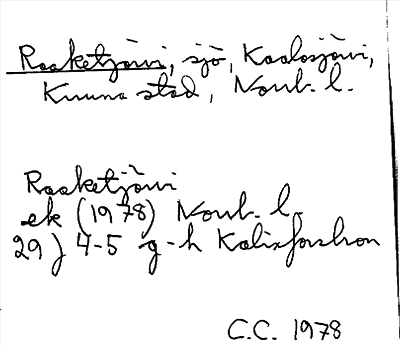 Raaketjärvi, sjö, Kaalosjärvi,
Kiruna stad, Norrb. l.
Raaketjärvi
ek (1978) Norrb. l.
29J 4-5 g-h Kalixforsbron
C.C. 1978